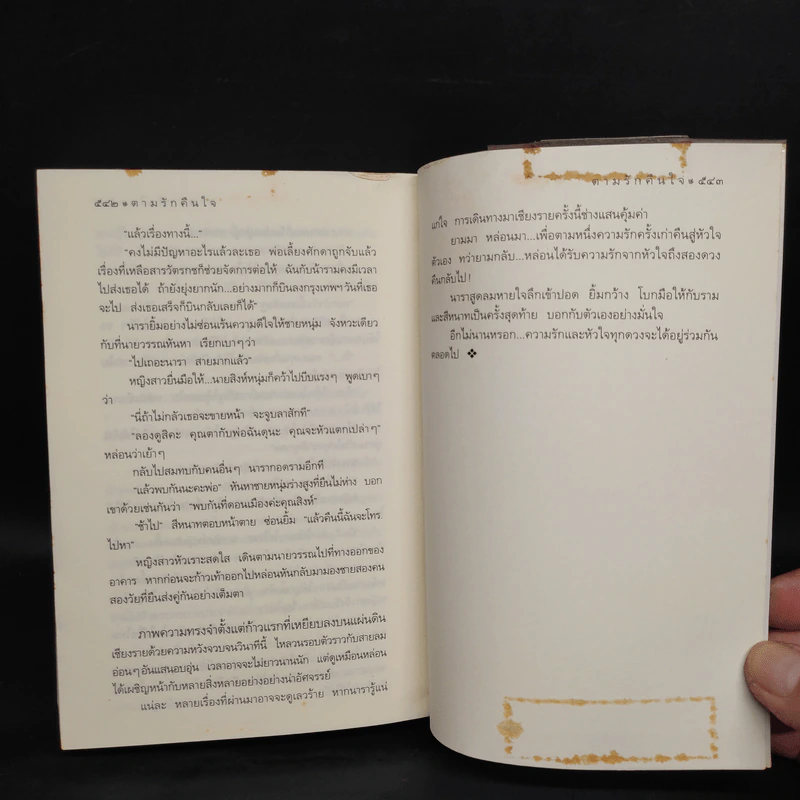 ๕๔๒ ๑ ตามรักคืนใจ
"แล้วเรื่องทางนี้..."
"คงไม่มีปัญหาอะไรแล้วละเธอ พ่อเลี้ยงศักดาถูกจับแล้ว
เรื่องที่เหลือสารวัตรกชก็ช่วยจัดการต่อให้ ฉันกับน้ารามคงมีเวลา
ไปส่งเธอได้ ถ้ายังยุ่งยากนัก...อย่างมากก็บินลงกรุงเทพฯวันที่เธอ
จะไป ส่งเธอเสร็จก็บินกลับเลยก็ได้"
นารายิ้มอย่างไม่ซ่อนเร้นความดีใจให้ชายหนุ่ม จังหวะเดียว
กับที่นายวรรณหันหา เรียกเบาๆว่า
"ไปเถอะนารา สายมากแล้ว"
หญิงสาวยื่นมือให้...นายสิงห์หนุ่มก็คว้าไปบีบแรงๆ พูดเบาๆ
ว่า
"นี่ถ้าไม่กลัวเธอจะขายหน้า จะจูบลาสักที"
"ลองดูสิคะ คุณตากับพ่อฉันดุนะ คุณจะหัวแตกเปล่าๆ"
หล่อนว่าเย้าๆ
กลับไปสมทบกับคนอื่นๆ นารากอดรามอีกที
"แล้วพบกันนะคะพ่อ" หันหาชายหนุ่มร่างสูงที่ยืนไม่ห่าง บอก
เขาด้วยเช่นกันว่า "พบกันที่ดอนเมืองค่ะคุณสิงห์"
"ช้าไป" สีหนาทตอบหน้าตาย ซ่อนยิ้ม "แล้วคืนนี้ฉันจะโทร.
ไปหา"
หญิงสาวหัวเราะสดใส เดินตามนายวรรณไปที่ทางออกของ
อาคาร หากก่อนจะก้าวเท้าออกไปหล่อนหันกลับมามองชายสองคน
สองวัยที่ยืนส่งคู่กันอย่างเต็มตา
ภาพความทรงจำตั้งแต่ก้าวแรกที่เหยียบลงบนแผ่นดิน
เชียงรายด้วยความหวังจวบจนวินาทีนี้ ไหลวนรอบตัวราวกับสายลม
อ่อนๆอันแสนอบอุ่น เวลาอาจจะไม่ยาวนานนัก แต่ดูเหมือนหล่อน
ได้เผชิญหน้ากับหลายสิ่งหลายอย่างอย่างน่าอัศจรรย์
แน่ละ หลายเรื่องที่ผ่านมาอาจจะดูเลวร้าย หากนารารู้แน่
ตามรักคืนใจ ๑ ๕๔๓
แก่ใจ การเดินทางมาเชียงรายครั้งนี้ช่างแสนคุ้มค่า
ยามมา หล่อนมา...เพื่อตามหนึ่งความรักครั้งเก่าคืนสู่หัวใจ
ตัวเอง ทว่ายามกลับ...หล่อนได้รับความรักจากหัวใจถึงสองดวง
คืนกลับไป!
นาราสูดลมหายใจลึกเข้าปอด ยิ้มกว้าง โบกมือให้กับราม
และสีหนาทเป็นครั้งสุดท้าย บอกกับตัวเองอย่างมั่นใจ
อีกไม่นานหรอก...ความรักและหัวใจทุกดวงจะได้อยู่ร่วมกัน
ตลอดไป ❖